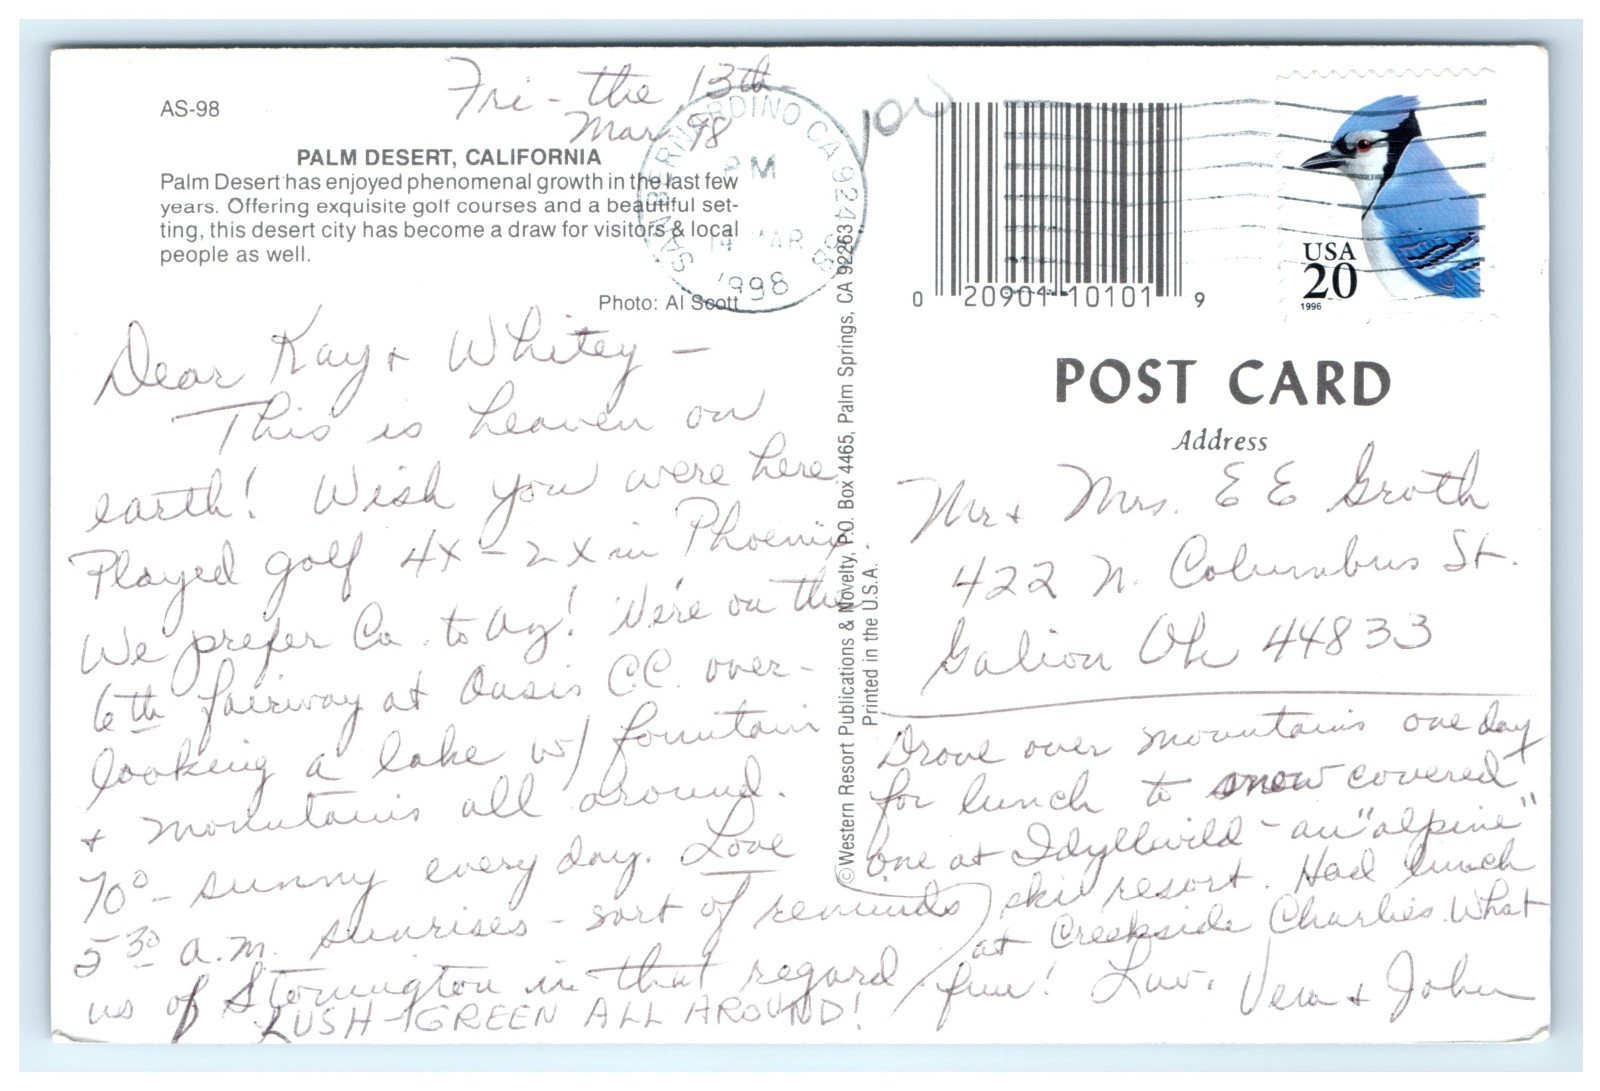 Fri - the 13th
Mar 98
AS-98
PALM DESERT, CALIFORNIA
Palm Desert has enjoyed phenomenal growth in the last few
years. Offering exquisite golf courses and a beautiful set-
ting, this desert city has become a draw for visitors & local
people as well.
Photo: Al Scott
SAN BERNARDINO CA 924
PM
14 MAR
1998
Dear Kay & Whitey -
This is heaven on
earth! Wish you were here
Played golf 4x - 2x in Phoenix.
We prefer Ca. to Az! We're on the
6th fairway at Oasis C.C. over-
looking a lake w/ fountain
& mountains all around.
70° - sunny every day. Love
5 30 a.m. sunrises - sort of reminds
us of Stonington in that regard
LUSH - GREEN ALL AROUND!
© Western Resort Publications & Novelty, P.O. Box 4465, Palm Springs, CA 92263
Printed in the U.S.A.
0 20901 10101 9
USA
20
1996
POST CARD
Address
Mr & Mrs. E E Groth
422 N. Columbus St.
Galion Oh 44833
Drove over mountains one day
for lunch to snow covered
one at Idyllwild - an "alpine"
ski resort. Had lunch
at Creekside Charlies. What
fun! Luv, Vera & John